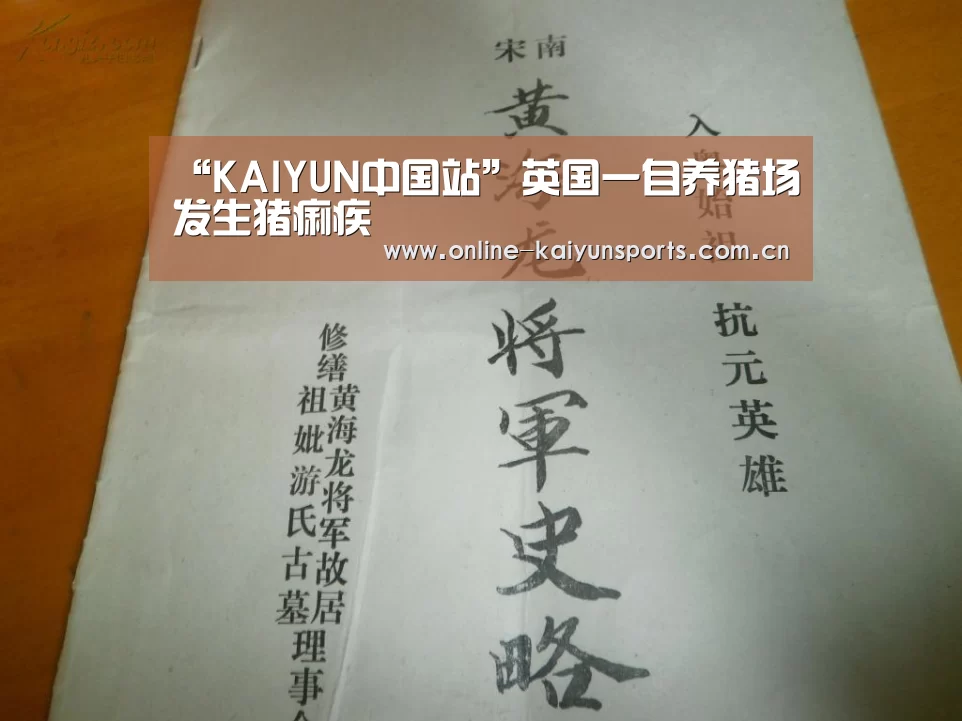 “KAIYUN中国站”英国一自养猪场
发生猪痢疾
www.online-kaiyunsports.com.cn
入粤始祖
抗元英雄
南宋
黄海龙将軍史略
修缮
黄海龙将军故居
祖妣游氏古墓
理事会